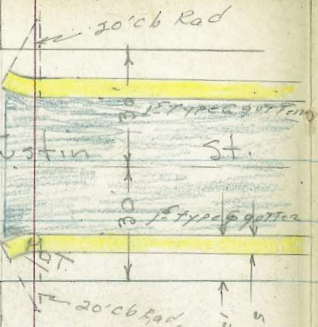 20'cb Rad
30'
1⁵ Type 6 gutter
ustin St.
30'
1⁵ Type 6 gutter
20'cb Rad